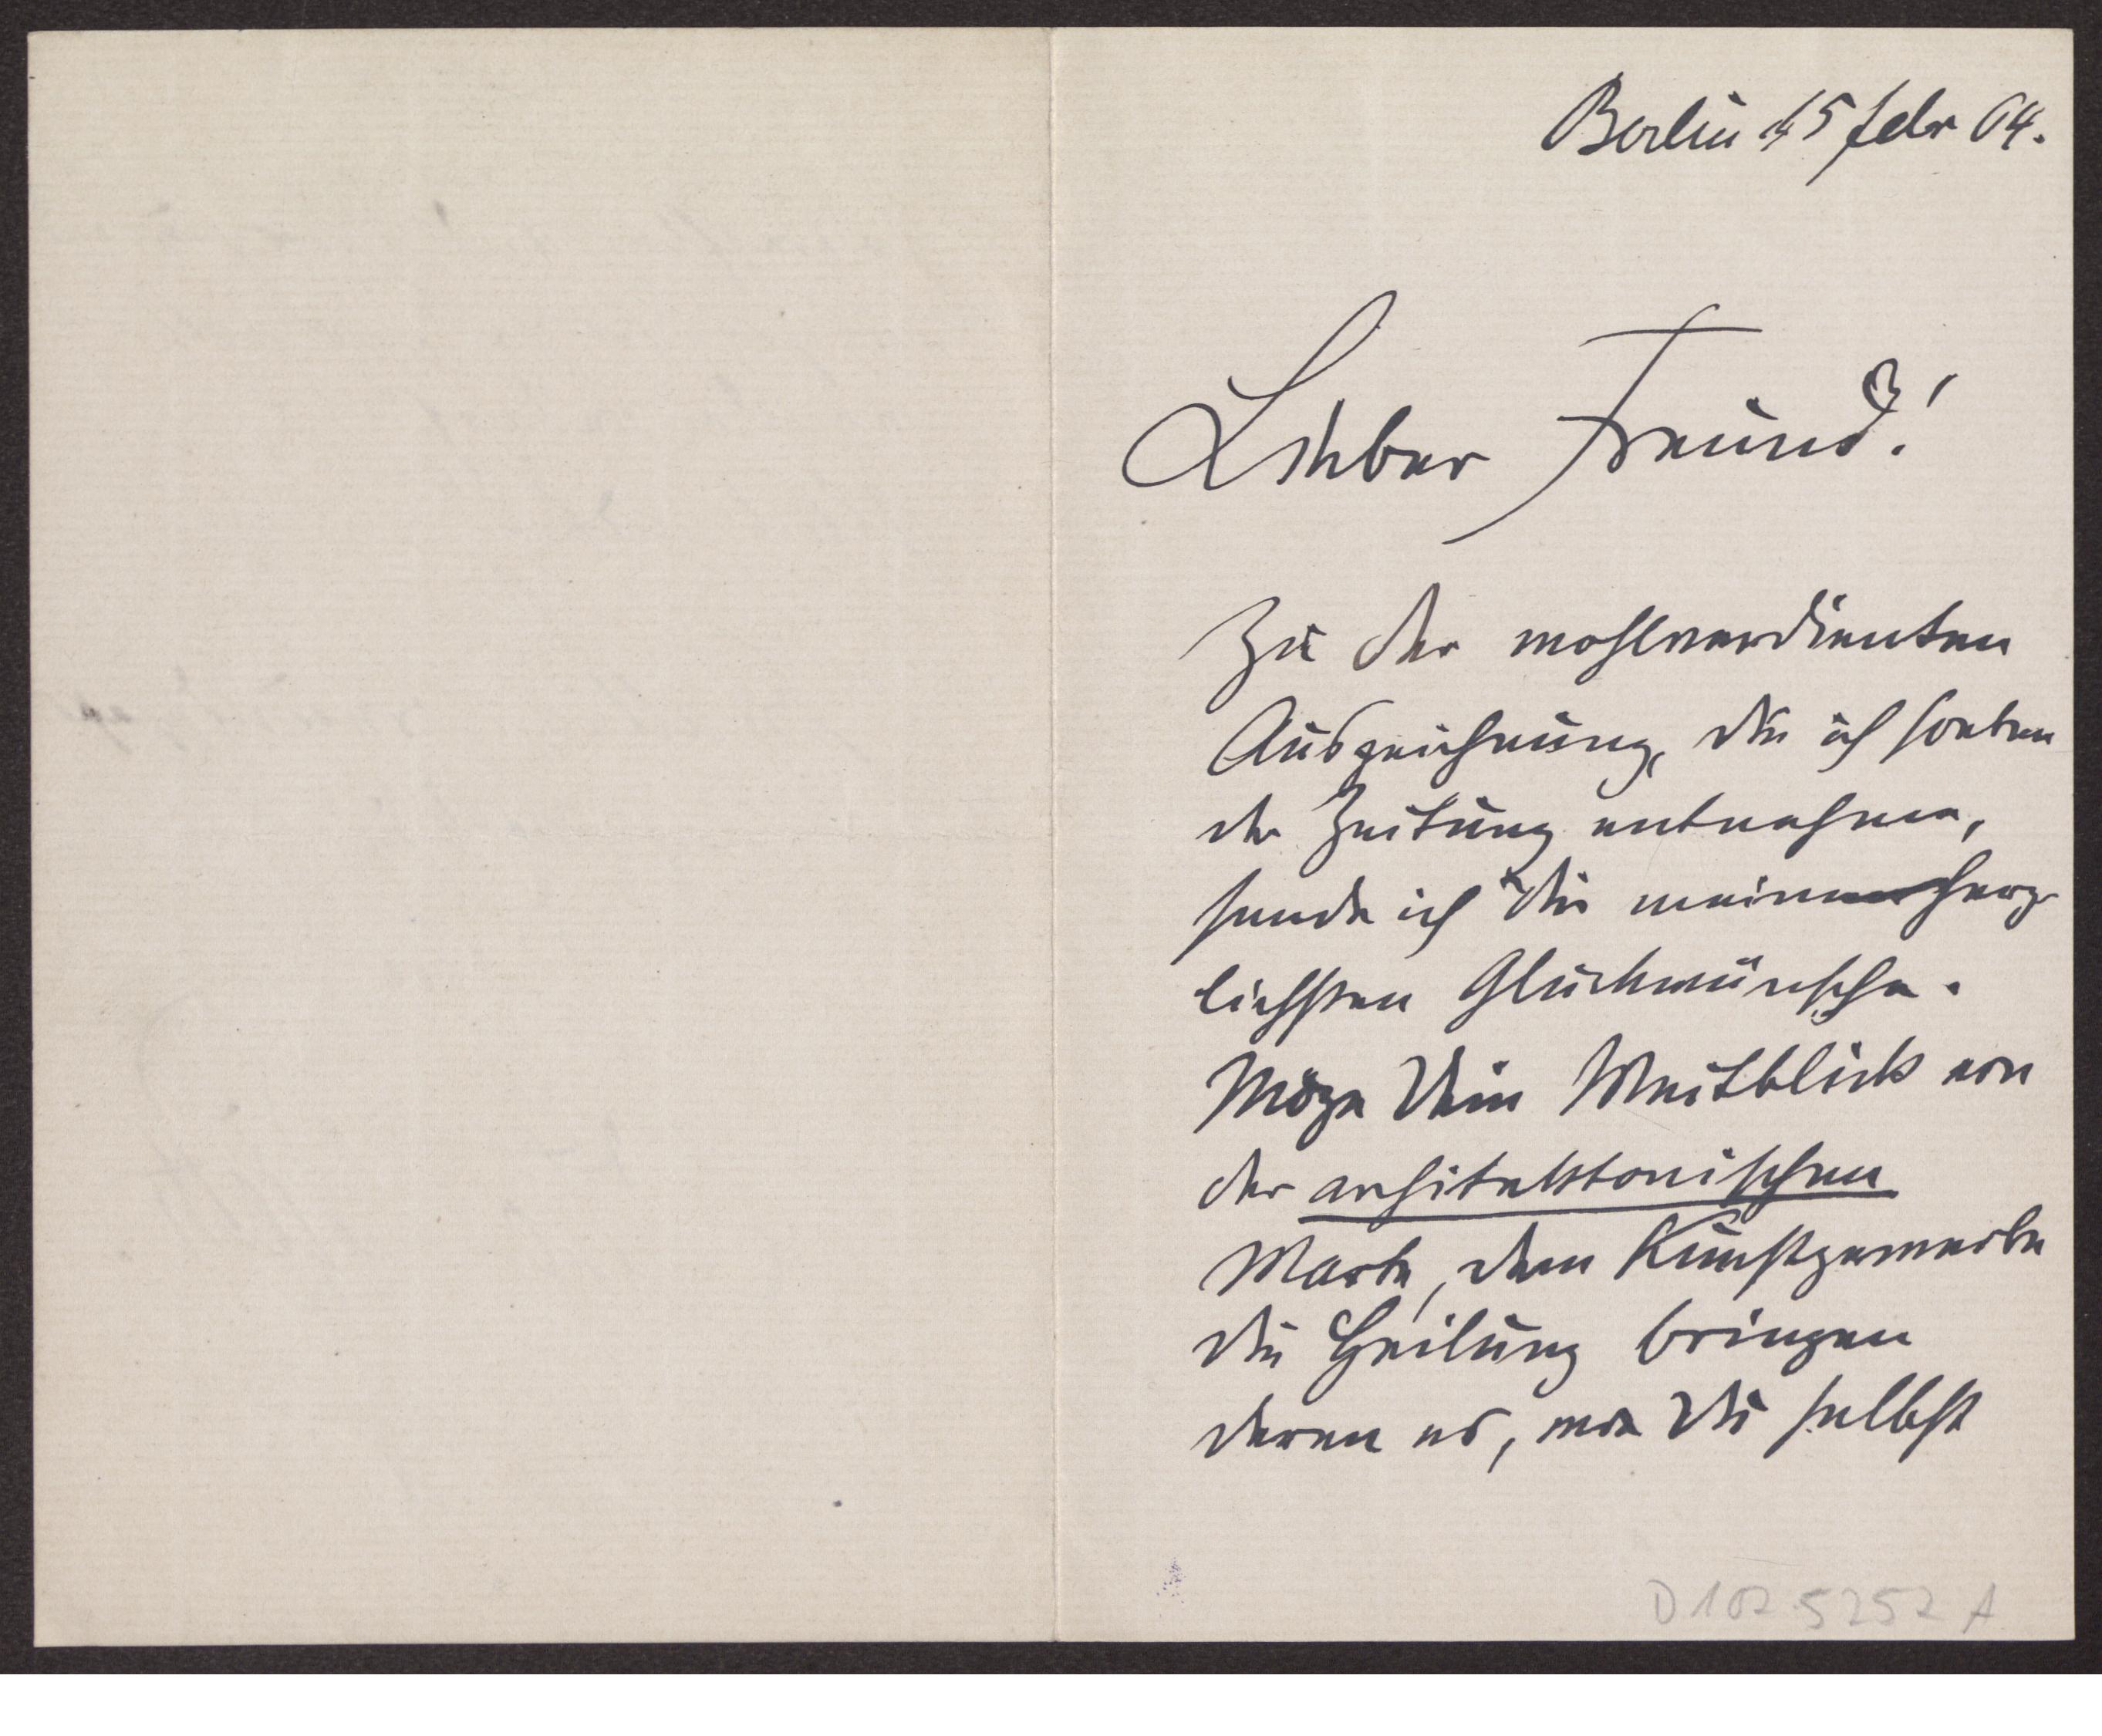 Berlin 15 febr 04.
Lieber Freund!
Zu der wohlverdienten
Auszeichnung, die ich soeben
der Zeitung entnehme,
sende ich Dir meine herz-
lichsten Glückwünsche.
Möge Dein Weitblick von
der architektonischen
Warte, dem Kunstgewerbe
die Heilung bringen
deren es, wie Du selbst
D 107 5257 A